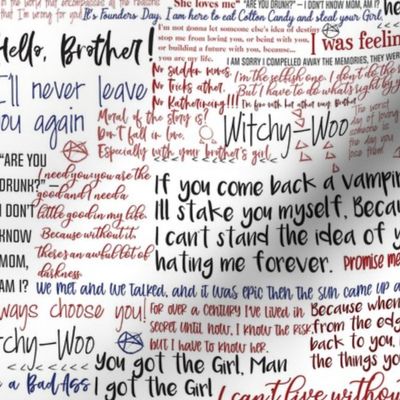 in the world that encompasses all the reasons
that I'm not going to let you
It's Founders Day, I am here to eat Cotton Candy and steal your Girl.
She loves me"
"ARE YOU DRUNK?" - I DON'T KNOW MOM, AM I?
Hello, Brother!
I'm not gonna let someone else's idea of destiny
stop me from loving you, or being with you,
or building a future with you, because...
you are my life.
I was feelin
I AM SORRY I COMPELLED AWAY THE MEMORIES, THEY WER
I'll never leave
you again
No sudden moves.
No Tricks athat.
No Katherineing!!!
I'm the selfish one. I don't do the
But I have to do what's right by
I'm fine with hot that way Brother
Moral of the story is?
Don't fall in love.
Especially with your brother's girl.
Witchy-Woo
The worst
day of loving
someone is
the day you
lose them.
"ARE YOU
DRUNK?" -
I DON'T
KNOW
MOM,
AM I?
I need you, you are the
good and I need a
little good in my life.
Because without it,
there's an awful lot of
darkness.
If you come back a vampir
I'll stake you myself, Becau
I can't stand the idea of y
hating me forever.
Promise me
we met and we talked, and it was epic then the sun came up a
ways choose you!
for over a century I've lived in
secret until now. I know the risk
but I have to know her.
Because when
from the edge
back to you. I
the things you
tchy-Woo
You got the Girl, Man
I got the Girl
e a Bad Ass
I can't live withou